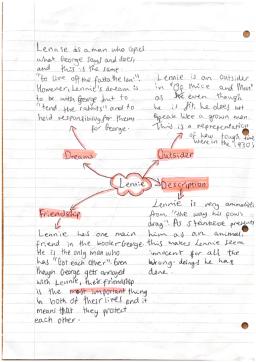 Lennie is a man who apes
what George says and does,
and this is the same
"to live off the fatta the lan'".
However, Lennie's dream is
to be with George but to
"tend the rabbits" and to
hold responsibility for them
for George.
Lennie is an outsider
in "Of Mice and Men"
as even though
he is fit, he does not
speak like a grown man.
This is a representation
of how tough times
were in the 1930s
Dreams
Outsider
Lennie
Description
Friendship
Lennie has one main
friend in the book - George
He is the only man who
has "Got each other". Even
though George gets annoyed
with Lennie, their friendship
is the most important thing
in both of their lives and it
means that they protect
each other.
Lennie is very animalistic
from "the way his paws
drag". As Steinbeck presents
him as an animal
this makes Lennie seem
innocent for all the
wrong doings he has
done.